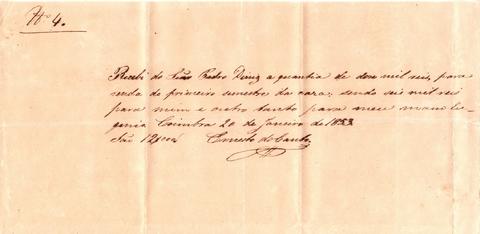 Nº 4.
Recebi do Snr. Pedro Diniz a quantia de doze mil reis, para
renda do primeiro semestre da caza: sendo seis mil reis
para mim e outro tanto para meu mano Eu-
genio Coimbra 20 de Janeiro de 1853
São 12$000 Ernesto do Canto